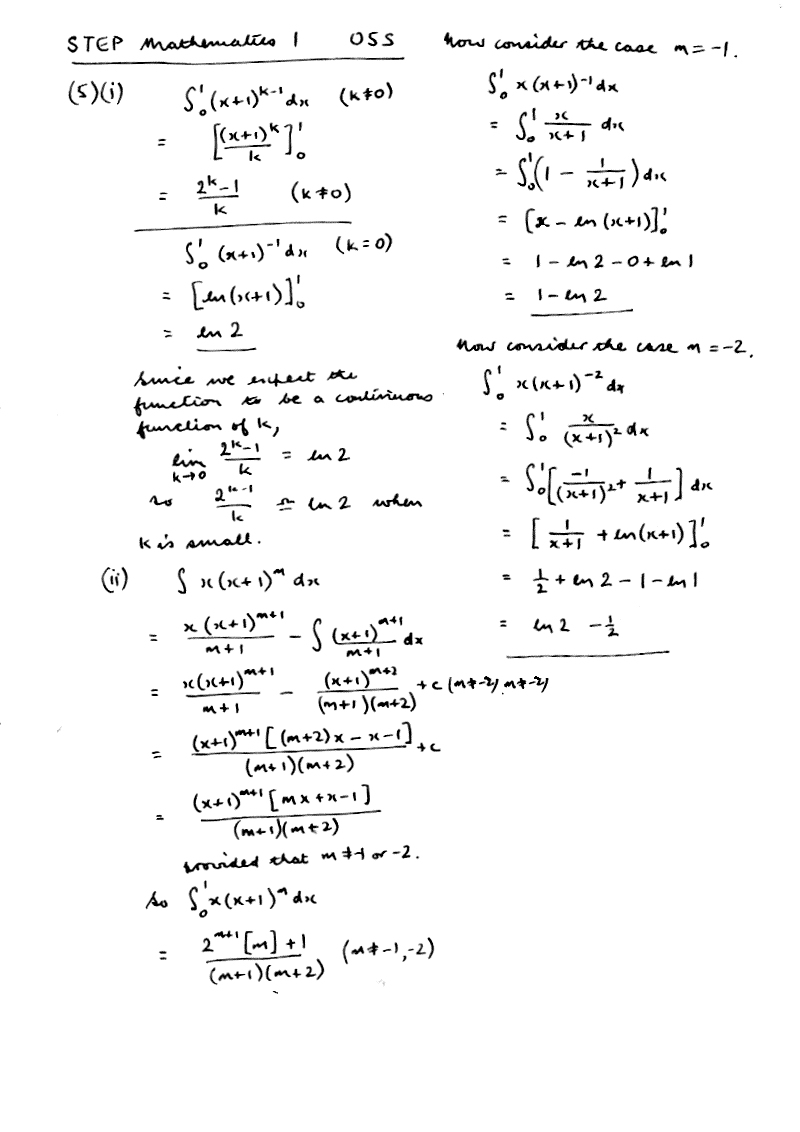 STEP Mathematics 1 OSS
(5)(i) ∫₀¹ (x+1)^{k-1} dx (k≠0)
= [(x+1)^k / k]₀¹
= (2^k - 1)/k (k≠0)
∫₀¹ (x+1)^{-1} dx (k=0)
= [ln(x+1)]₀¹
= ln 2
Since we expect the
function to be a continuous
function of k,
lim_{k→0} (2^k - 1)/k = ln 2
so (2^k - 1)/k ≃ ln 2 when
k is small.
(ii) ∫ x(x+1)^m dx
= x(x+1)^{m+1}/(m+1) - ∫ (x+1)^{m+1}/(m+1) dx
= x(x+1)^{m+1}/(m+1) - (x+1)^{m+2}/((m+1)(m+2)) + c (m≠-2), m≠-2)
= (x+1)^{m+1}[(m+2)x - x - 1]/((m+1)(m+2)) + c
= (x+1)^{m+1}[mx + x - 1]/((m+1)(m+2))
provided that m≠-1 or -2.
So ∫₀¹ x(x+1)^m dx
= (2^{m+1}[m] + 1)/((m+1)(m+2)) (m≠-1,-2)
Now consider the case m = -1.
∫₀¹ x(x+1)^{-1} dx
= ∫₀¹ x/(x+1) dx
= ∫₀¹ (1 - 1/(x+1)) dx
= [x - ln(x+1)]₀¹
= 1 - ln 2 - 0 + ln 1
= 1 - ln 2
Now consider the case m = -2.
∫₀¹ x(x+1)^{-2} dx
= ∫₀¹ x/(x+1)² dx
= ∫₀¹ [-1/(x+1)² + 1/(x+1)] dx
= [1/(x+1) + ln(x+1)]₀¹
= ½ + ln 2 - 1 - ln 1
= ln 2 - ½